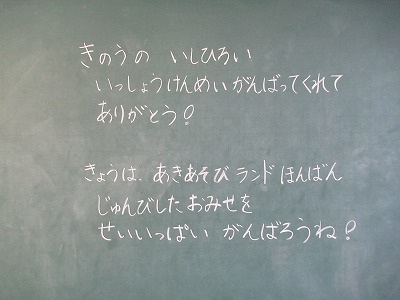 きのうの いしひろい
いっしょうけんめい がんばってくれて
ありがとう!
きょうは、あきあそび ランド ほんばん
じゅんびした おみせを
せいいっぱい がんばろうね!